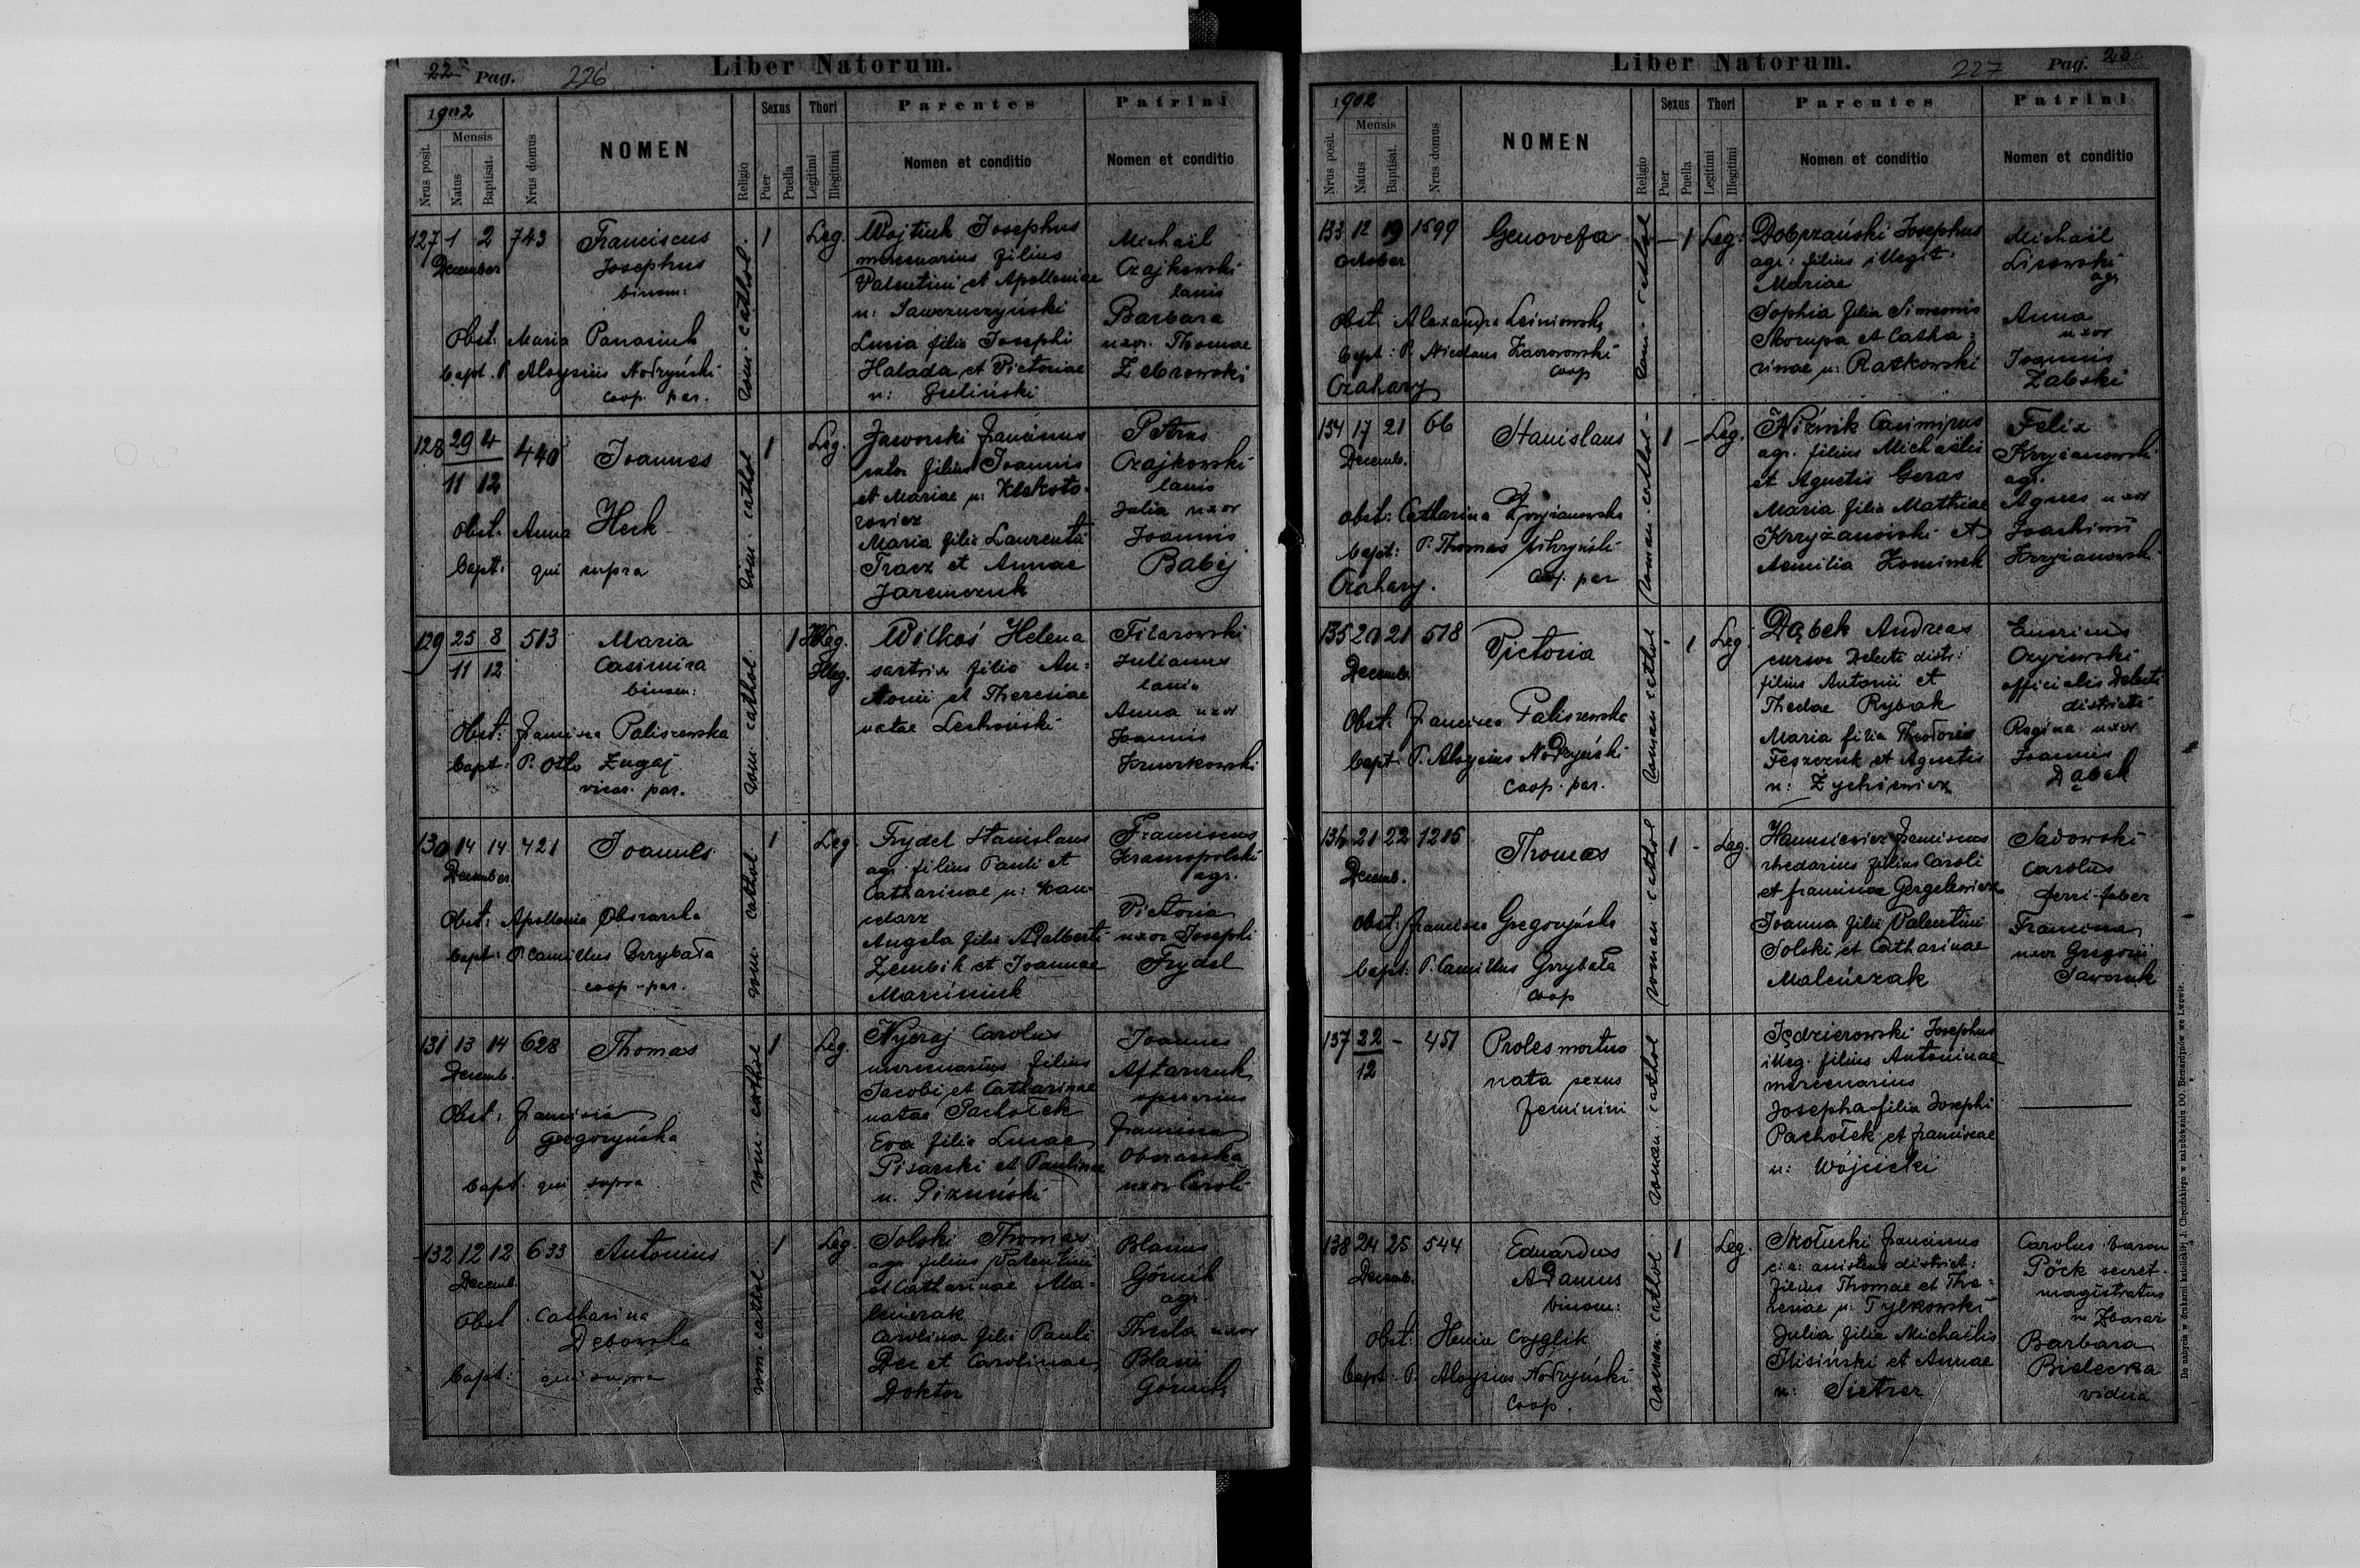 22 Pag. 226 Liber Natorum.
1902
Nrus posit.
Mensis
Natus
Baptisat.
Nrus domus
NOMEN
Religio
Sexus
Puer
Puella
Thori
Legitimi
Illegitimi
Parentes
Nomen et conditio
Patrini
Nomen et conditio
127 1 2 743
December
Franciscus
Josephus
binom:
Obst: Maria Panasiuk
bapt. P. Aloysius Nodzyński
coop. par.
rom. cathol.
1 Leg.
Wojtiuk Josephus
mercenarius filius
Valentini et Apolloniae
n: Sawczuczyński
Lucia filia Josephi
Halada et Victoriae
n: Guliński
Michaël
Czajkowski
lanis
Barbara
uxor Thomae
Zebrowski
128 29 4 440
11 12
Joannes
Obst. Anna Heck
bapt: qui supra
rom. cathol
1 Leg.
Jaworski Franciscus
sutor filius Joannis
et Mariae n:
Maria filia Laurentii
Tracz et Annae
Jaremczuk
Petrus
Czajkowski
lanis
Julia uxor
Joannis
Babij
129 25 8 513
11 12
Maria
Casimira
binom:
Obst: Francisca Paliszewska
bapt: P. Otto Zugaj
vicar. par.
rom. cathol
1 Illeg.
Illeg.
Wilkoś Helena
sartrix filia An-
tonii et Theresiae
natae Lechoński
Julianus
Anna uxor
Joannis
130 14 14 421
December
Joannes
Obst: Apollonia Obszarska
bapt: P. Camillus Grzybała
coop. par.
rom. cathol.
1 Leg.
Frydel Stanislaus
agr. filius Pauli et
Catharinae n: Kan-
celarz
Angela filia Adalberti
Zembik et Joannae
Marciniuk
Franciscus
Krasnopolski
agr.
Victoria
uxor Josephi
Frydel
131 13 14 628
Decemb.
Thomas
Obst: Francisca
Gregoryńska
bapt. qui supra
rom. cathol
1 Leg.
Nyczaj Carolus
mercenarius filius
Jacobi et Catharinae
natae Pachołek
Eva filia Lucae
Pisarski et Paulinae
n.
Joannes
Aftarczuk
Francisca
Obszarska
uxor Caroli
132 12 12 633
Decemb.
Antonius
Obst. Catharina
Dębowska
bapt: qui supra
rom. cathol
1 Leg.
Solski Thomas
agr. filius Valentini
et Catharinae Ma-
leńczak
Carolina filia Pauli
Dec et Carolinae
Doktor
Blasius
Górnik
agr.
Thecla uxor
Blasii
Górnik
Liber Natorum. 227 Pag.
1902
Nrus posit.
Mensis
Natus
Baptisat.
Nrus domus
NOMEN
Religio
Sexus
Puer
Puella
Thori
Legitimi
Illegitimi
Parentes
Nomen et conditio
Patrini
Nomen et conditio
133 12 19 1599
October
Genovefa
Obst. Alexandra Leśniowska
bapt: P. Nicolaus
coop
Czahary
rom. cathol
— 1 Leg:
Dobrzański Josephus
agr: filius illegit.
Mariae
Sophia filia Simeonis
Skorupa et Catha-
rinae n: Ratkowski
Michaël
Lisowski
agr
Anna
uxor
Joannis
Zabski
134 17 21 66
Decemb.
Stanislaus
obst: Catharina Krzyżanowska
bapt: P. Thomas
coop. par
Czahary.
roman. cathol.
1 — Leg.
Niźnik Casimirus
agr. filius Michaëlis
et Agnetis Geras
Maria filia Mathiae
Krzyżanowski et
Aemilia Kominek
Felix
Krzyżanowski
agr.
Agnes uxor
Joachimi
Krzyżanowski
135 20 21 518
Decemb.
Victoria
Obst. Francisca Paliszewska
bapt. P. Aloysius Nodzyński
coop. par.
roman cathol
1 Leg.
Dąbek Andreas
cursor Delecti distr:
filius Antonii et
Theclae Rybak
Maria filia Theodoris
Feszczuk et Agnetis
n: Zychiewicz
Czyżewski
officialis Delecti
districti
Regina uxor
Joannis
Dąbek
136 21 22 1215
Decemb.
Thomas
obst: Francisca Gregoryńska
bapt: P. Camillus Grzybała
coop
roman cathol
1 - Leg.
Franciscus
rhedarius filius Caroli
et Franciscae Gergelewicz
Joanna filia Valentini
Solski et Catharinae
Maleńczak
Sadowski
Carolus
ferri-faber
Francisca
uxor Gregorii
137 22 - 451
12
Proles mortuo
nata sexus
feminini
roman. cathol
Jędzierowski Josephus
illeg. filius Antoninae
mercenarius
Josepha filia Josephi
Pachołek et Franciscae
n: Wójcicki
138 24 25 544
Decemb.
Eduardus
Adamus
binom:
obst: Henia Cyglik
bapt: P. Aloysius Nodzyński
coop.
roman. cathol.
1 Leg.
Skołucki Franciscus
c: r: assistens district:
filius Thomae et The-
resiae n: Tylkowski
Julia filia Michaëlis
Ilisiński et Annae
n: Pietrer
Carolus baron
Pöck secret.
magistratus
in Zbaraż
Barbara
Bielecka
vidua
De nabycia w drukarni katolickiej J. Chęcińskiego w zabudowaniu OO. Bernardynów we Lwowie.